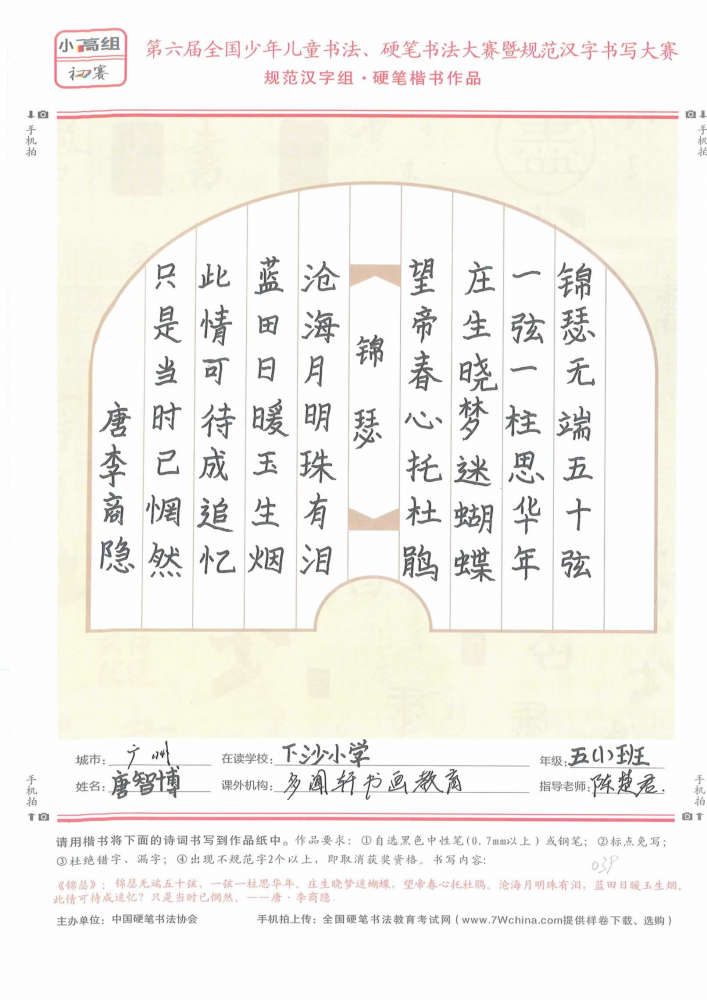 小高组
初赛
第六届全国少年儿童书法、硬笔书法大赛暨规范汉字书写大赛
规范汉字组·硬笔楷书作品
手机拍
手机拍
锦瑟无端五十弦
一弦一柱思华年
庄生晓梦迷蝴蝶
望帝春心托杜鹃
锦瑟
沧海月明珠有泪
蓝田日暖玉生烟
此情可待成追忆
只是当时已惘然
唐李商隐
城市：广州 在读学校：下沙小学 年级：五(1)班
姓名：唐智博 课外机构：多闻轩书画教育 指导老师：陈楚君.
手机拍
手机拍
请用楷书将下面的诗词书写到作品纸中。作品要求：①自选黑色中性笔(0.7mm以上）或钢笔；②标点免写；
③杜绝错字、漏字；④出现不规范字2个以上，即取消获奖资格。书写内容：
039
《锦瑟》：锦瑟无端五十弦，一弦一柱思华年。庄生晓梦迷蝴蝶，望帝春心托杜鹃。沧海月明珠有泪，蓝田日暖玉生烟。
此情可待成追忆？只是当时已惘然。——唐·李商隐
主办单位：中国硬笔书法协会 手机拍上传：全国硬笔书法教育考试网（www.7Wchina.com提供样卷下载、选购）